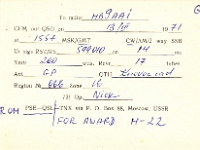 To radio HA9AAI
CFM, our QSO: on 13 1971
at 1557 MSK/GMT CW/AM/2 way SSB
Ur sigs RST/RS 599010 on 14 mc
Xmtr 200 watts. Rcvr 17 tubes
Ant GP QTH
Region № 066 Zone 16
73! Op. Nick
PSE-QSL TNX via P. O. Box 88, Moscow, USSR
FOR AWARD H-22